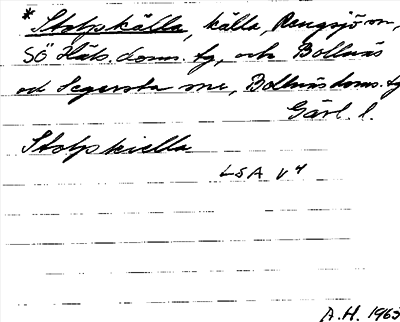 * Stolpkälla, källa, Rengsjö sn,
SÖ Häls. doms. tg, och Bollnäs
och Segersta snr, Bollnäs doms. tg
Gävl. l.
Stolpkiella
LSA V 4
A.H. 1963